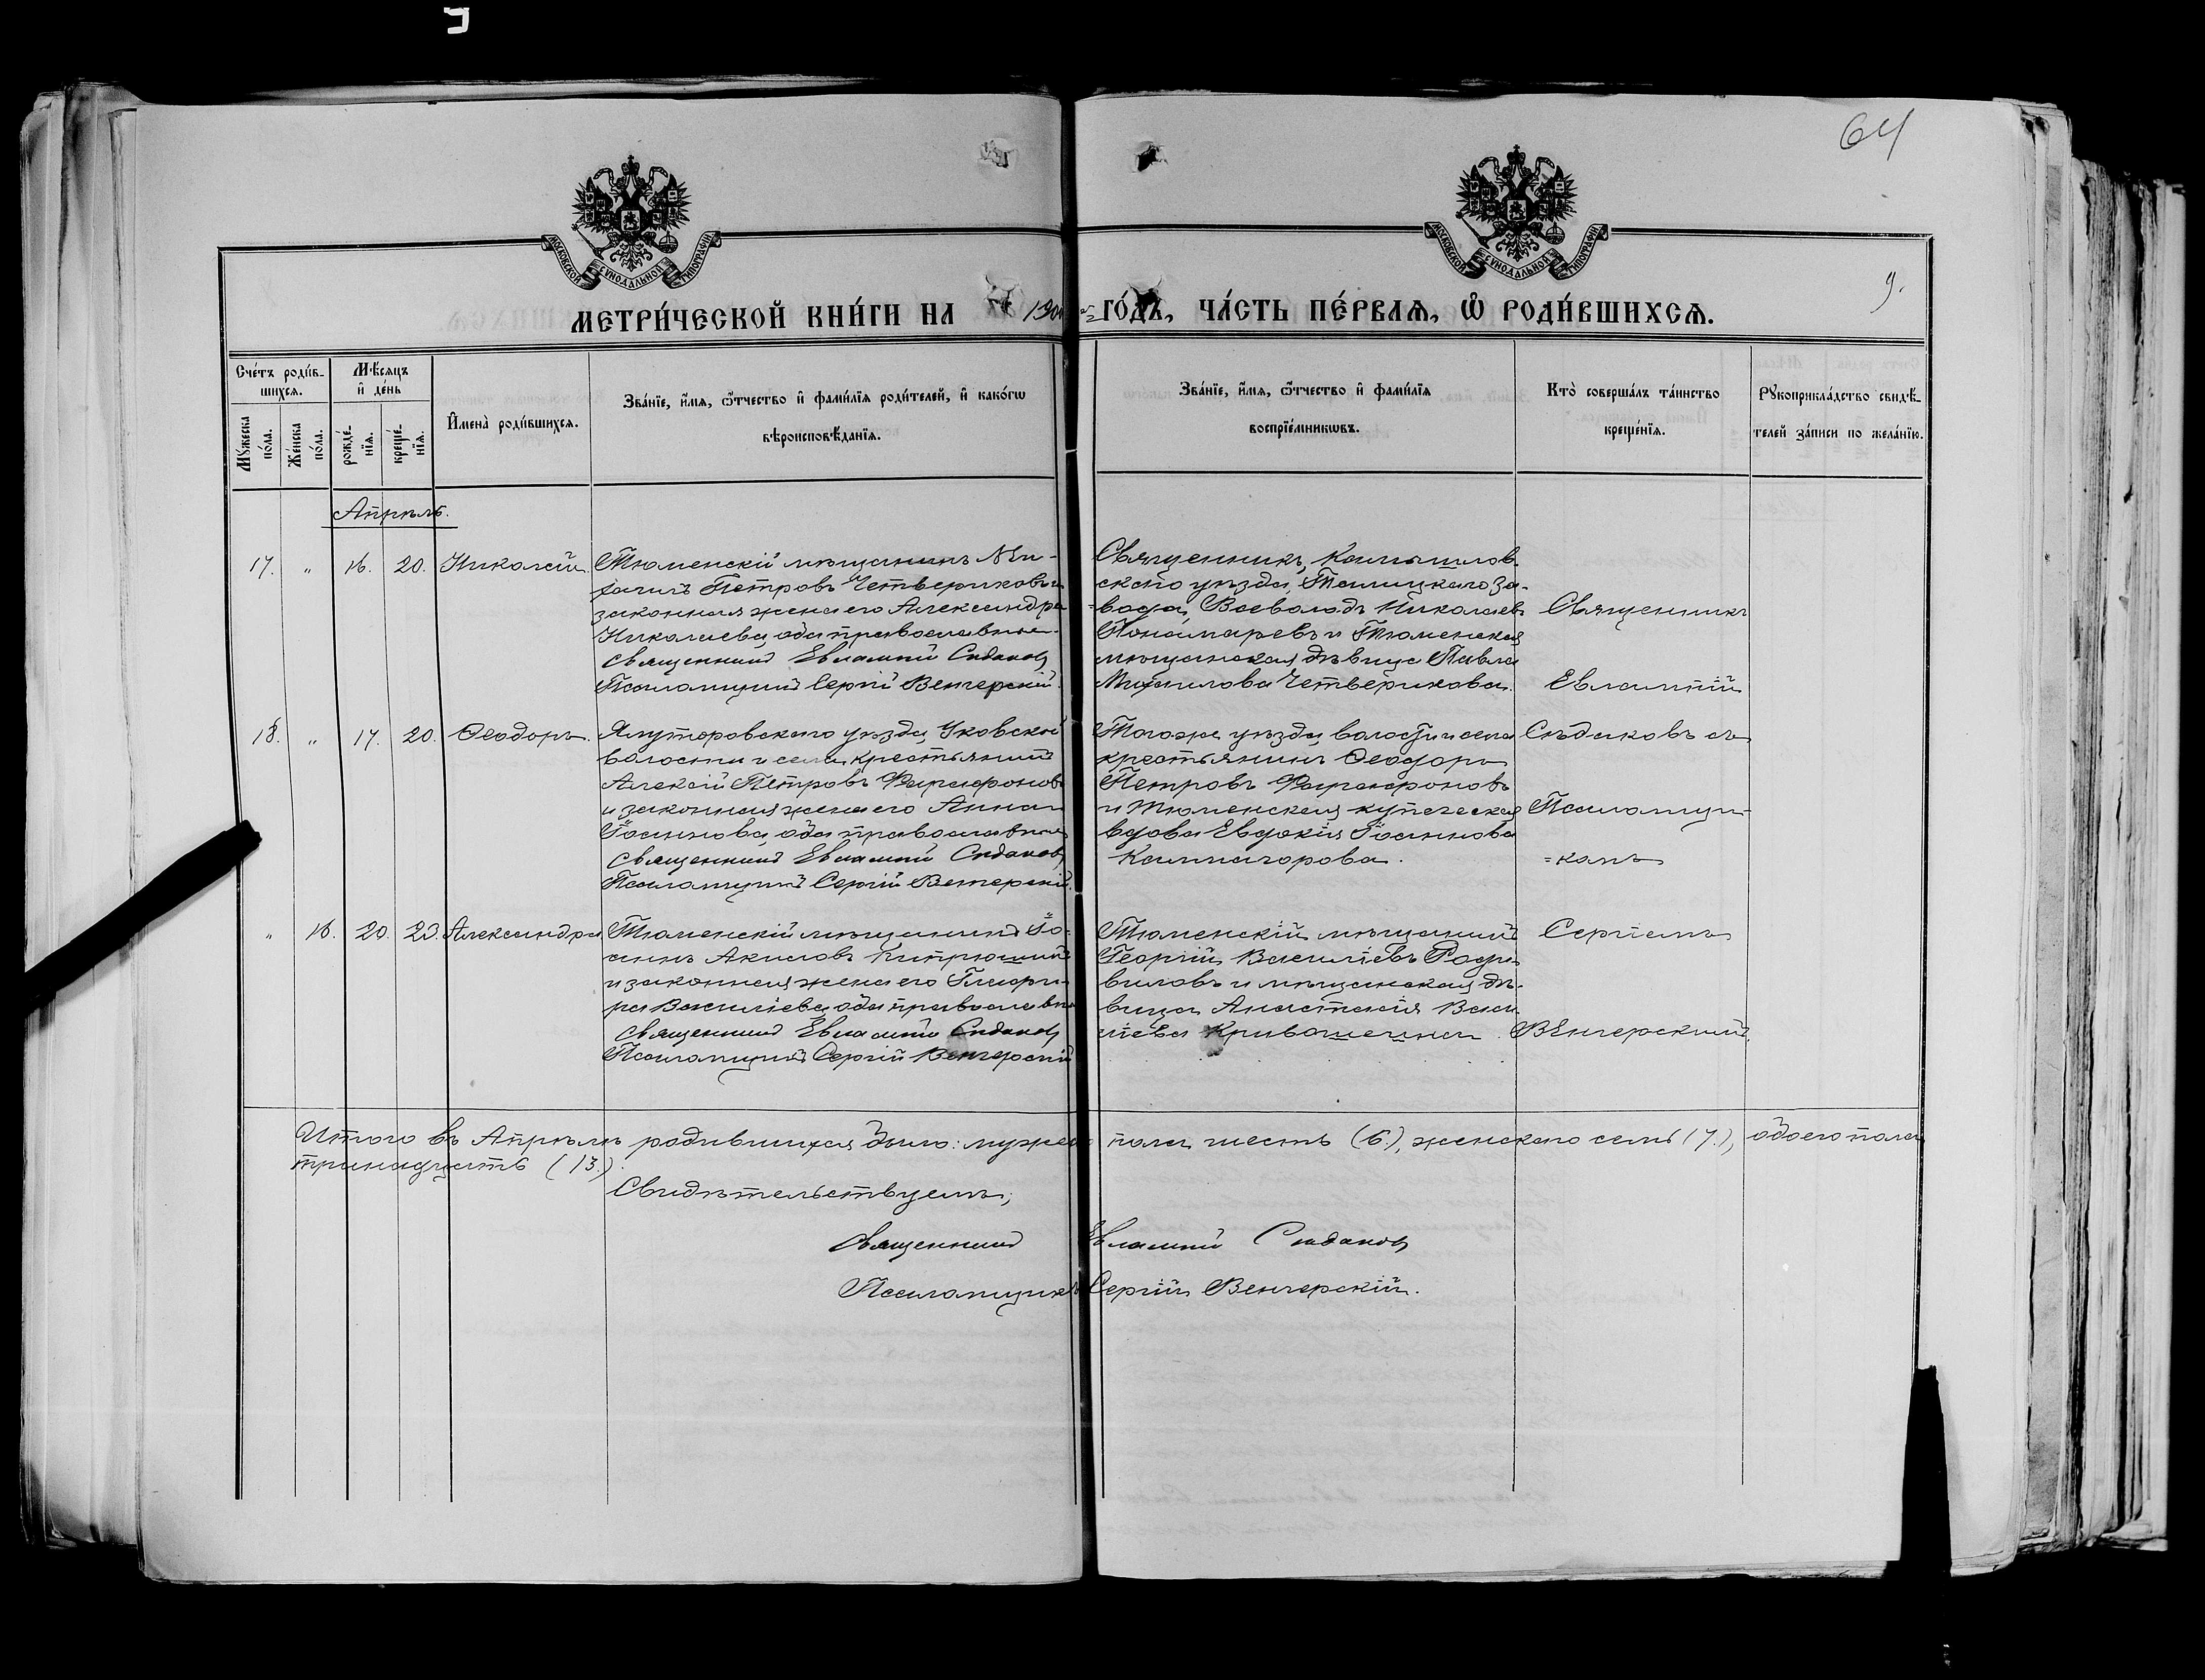 64
МОСКОВСКОЙ СУНОДАЛЬНОЙ ТИПОГРАФІИ
МОСКОВСКОЙ СУНОДАЛЬНОЙ ТИПОГРАФІИ
9.
МЕТРИ́ЧЕСКОЙ КНИ́ГИ НА 190 ГО́ДЪ, ЧА́СТЬ ПЕ́РВАѦ, Ѽ РОДИ́ВШИХСѦ.
Сче́тъ роди́в-
шихся.
Мѣ́сяцъ
и҆ де́нь
Мꙋ́жеска по́ла.
Же́нска по́ла.
рожде́-нїя.
креще́-нїя.
И҆мена̀ роди́вшихся.
Зва́нїе, и҆́мя, ѻ҆́тчество и҆ фами́лїя роди́телей, и҆ како́гѡ
вѣроисповѣ́данїя.
Зва́нїе, и҆́мя, ѻ҆́тчество и҆ фами́лїя
воспрїе́мникѡвъ.
Кто̀ соверша́лъ та́инство
креще́нїя.
Рꙋкоприкла́дство свидѣ́-
телей за́писи по жела́нїю.
Апрѣль.
17. „ 16. 20. Николай
Тюменскій мѣщанинъ Ми-
хаилъ Петровъ Четвериковъ и
законная жена его Александра
Николаева, оба православные.
Священникъ Евлампій Сѣдаковъ
Псаломщикъ Сергій Венгерскій.
Священникъ, Камышлов-
скаго уѣзда, Талицкаго за-
=вода, Всеволодъ Николаевъ
Пономаревъ и Тюменская
мѣщанская дѣвица Павла
Михаилова Четверикова.
Священникъ
Евлампій
18. „ 17. 20. Ѳеодоръ.
Ялуторовскаго уѣзда, Уковской
волости и села, крестьянинъ
Алексій Петровъ Фарафоновъ
и законная жена его Анна
Іоаннова, оба православные
Священникъ Евлампій Сѣдаковъ
Псаломщикъ Сергій Венгерскій.
Тогоже уѣзда, волости и села
крестьянинъ Ѳеодоръ
Петровъ Фарафоновъ
и Тюменская купеческая
вдова Евдокія Іоаннова
Колмогорова.
Сѣдаковъ съ
Псаломщи-
=комъ
„ 16. 20. 23. Александра
Тюменскій мѣщанинъ Іо-
аннъ Акиловъ
и законная жена его Глафи-
ра Василіева, оба православные
Священникъ Евлампій Сѣдаковъ
Псаломщикъ Сергій Венгерскій
Тюменскій мѣщанинъ
Георгій Василіевъ
и мѣщанская дѣ-
вица Анастасія Васи-
ліева Кривошеина.
Сергіемъ
Венгерскимъ.
Итого въ Апрѣлѣ родившихся было: мужеска пола шесть (6.), женскаго семь (7.), обоего пола
тринадцать (13.).
Свидѣтельствуемъ;
Священникъ Евлампій Сѣдаковъ
Псаломщикъ Сергій Венгерскій.